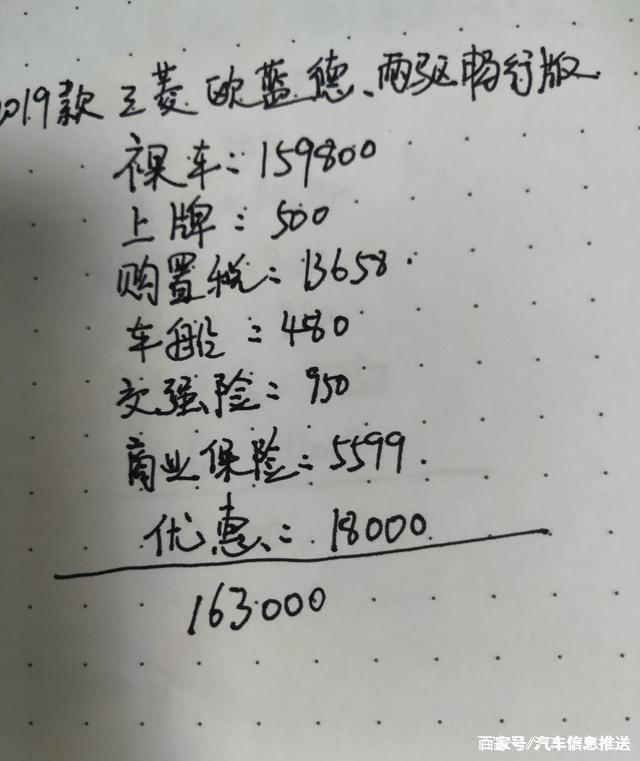 2019款三菱欧蓝德、两驱畅行版
裸车:159800
上牌:500
购置税:13658.
车船:480
交强险:950
商业保险:5599.
优惠:18000
163000
百家号/汽车信息推送